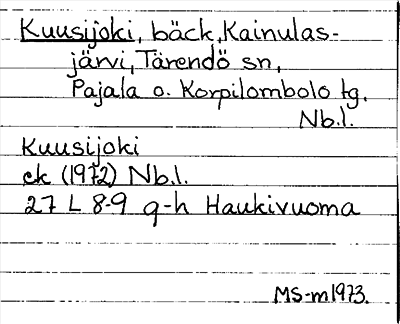 Kuusijoki, bäck, Kainulas-
järvi, Tärendö sn,
Pajala o. Korpilombolo tg.
Nb.l.
Kuusijoki
ek (1972) Nb.l.
27 L 8-9 g-h Haukivuoma
MS-m1973.